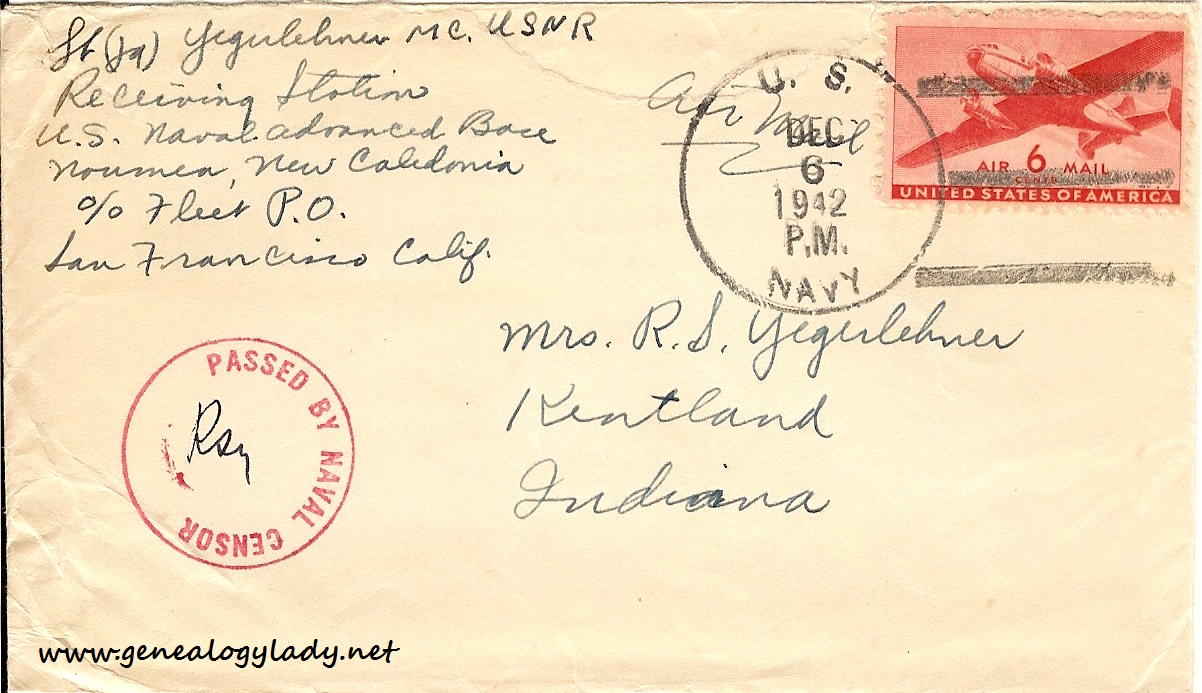 Lt (jg) Yegerlehner MC. USNR
Receiving Station
U.S. Naval Advanced Base
Noumea, New Caledonia
c/o Fleet P.O.
San Francisco Calif.
Air Mail
U. S.
DEC
6
1942
P.M.
NAVY
AIR 6 MAIL
CENTS
UNITED STATES OF AMERICA
Mrs. R. S. Yegerlehner
Kentland
Indiana
PASSED BY NAVAL CENSOR
Rsy
www.genealogylady.net